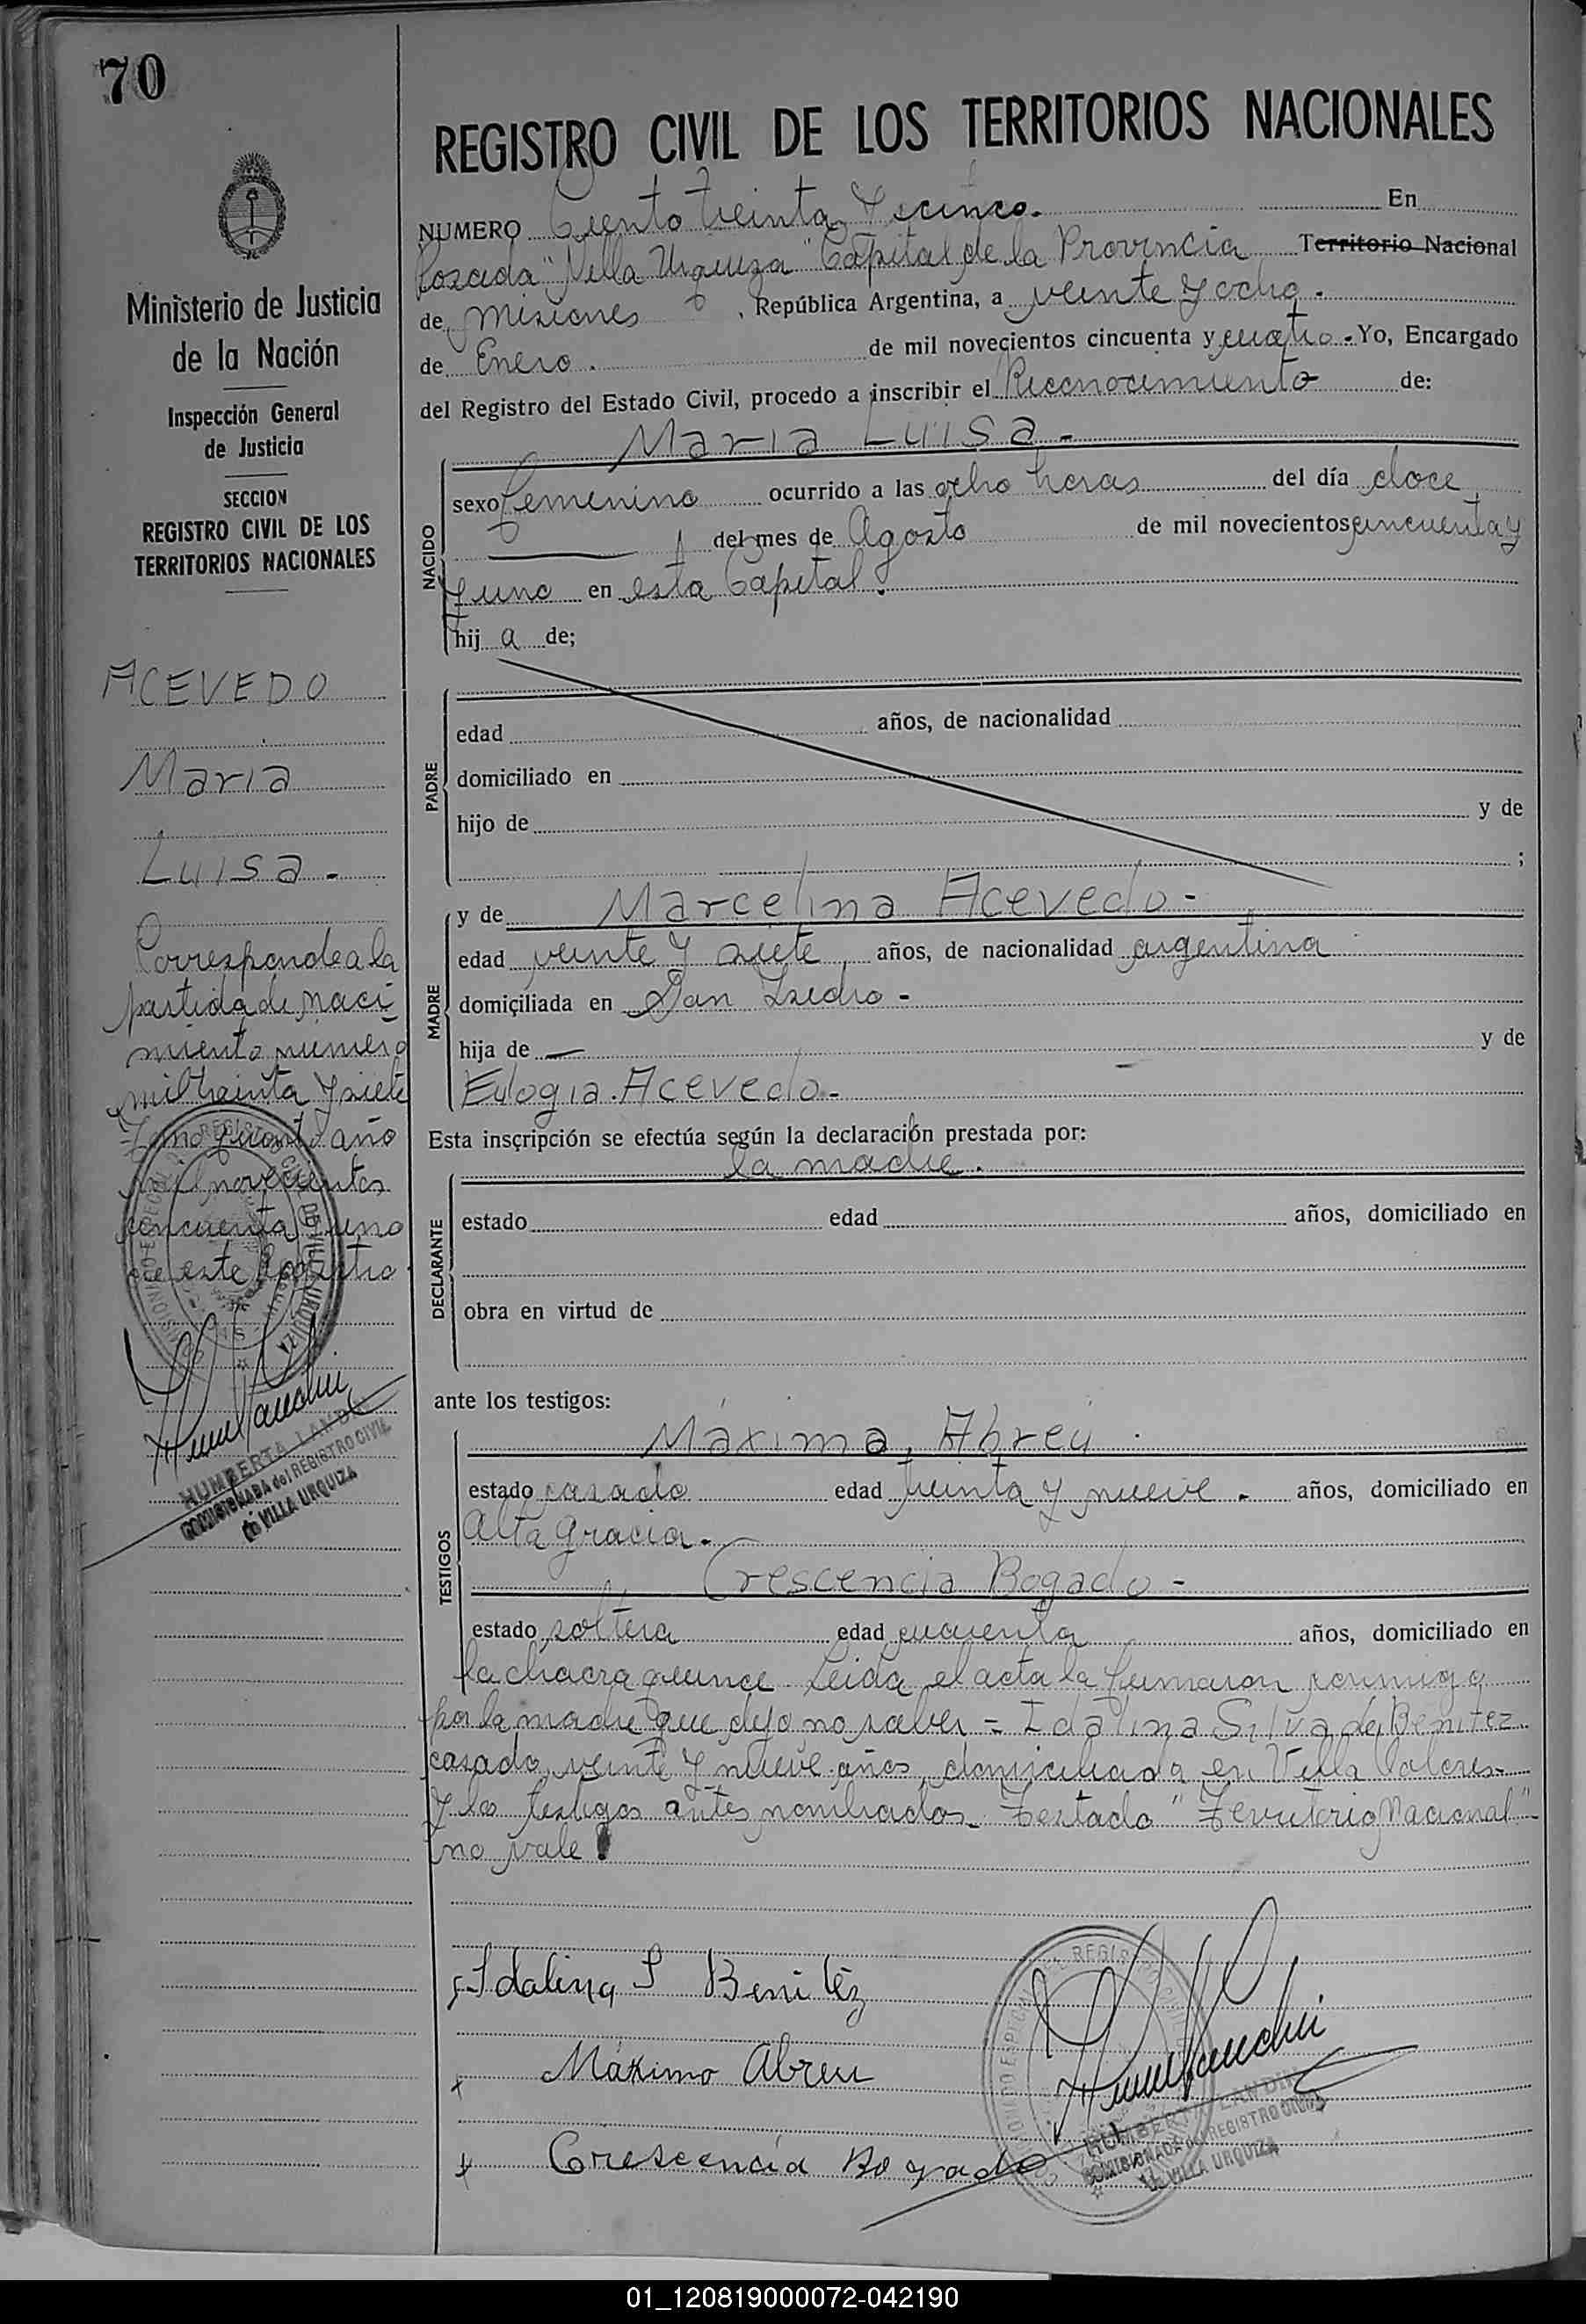 70
Ministerio de Justicia
de la Nación
Inspección General
de Justicia
SECCION
REGISTRO CIVIL DE LOS
TERRITORIOS NACIONALES
ACEVEDO
Maria
Luisa.-
Corresponde a la
partida de naci
miento numero
mil treinta y siete
año
mil novecientos
cincuenta y uno
de este Registro
HUMBERTA LANDINI
COMISIONADA del REGISTRO CIVIL
de VILLA URQUIZA
REGISTRO CIVIL DE LOS TERRITORIOS NACIONALES
NUMERO Ciento treinta y cinco.- En
Posada "Villa Urquiza" Capital de la Provincia Territorio Nacional
de Misiones, República Argentina, a veinte y ocho.
de Enero. de mil novecientos cincuenta y cuatro.- Yo, Encargado
del Registro del Estado Civil, procedo a inscribir el Reconocimiento de:
Maria Luisa.-
NACIDO
sexo femenino ocurrido a las ocho horas del día doce
del mes de Agosto de mil novecientos cincuenta y
y uno en esta Capital.
hij a de;
PADRE
edad años, de nacionalidad
domiciliado en
hijo de y de
;
MADRE
y de Marcelina Acevedo-
edad veinte y siete años, de nacionalidad argentina
domiciliada en San Isidro-
hija de — y de
Eulogia Acevedo.-
Esta inscripción se efectúa según la declaración prestada por:
la madre.
DECLARANTE
estado edad años, domiciliado en
obra en virtud de
ante los testigos:
TESTIGOS
Máximo Abreu
estado casado edad treinta y nueve.- años, domiciliado en
Alta gracia.-
Crescencia Bogado-
estado soltera edad cuarenta años, domiciliado en
la chacra quince. Leida el acta la firmaron conmigo
por la madre que dijo no saber = Idalina Silva de Benitez
casada, veinte y nueve años, domiciliada en Villa
y los testigos antes nombrados. Testado "Territorio Nacional"
no vale.
Idalina S Benitéz
x Máximo Abreu
x Crescencia Bogado
HUMBERTA LANDINI
COMISIONADA del REGISTRO CIVIL
de VILLA URQUIZA
01_120819000072-042190